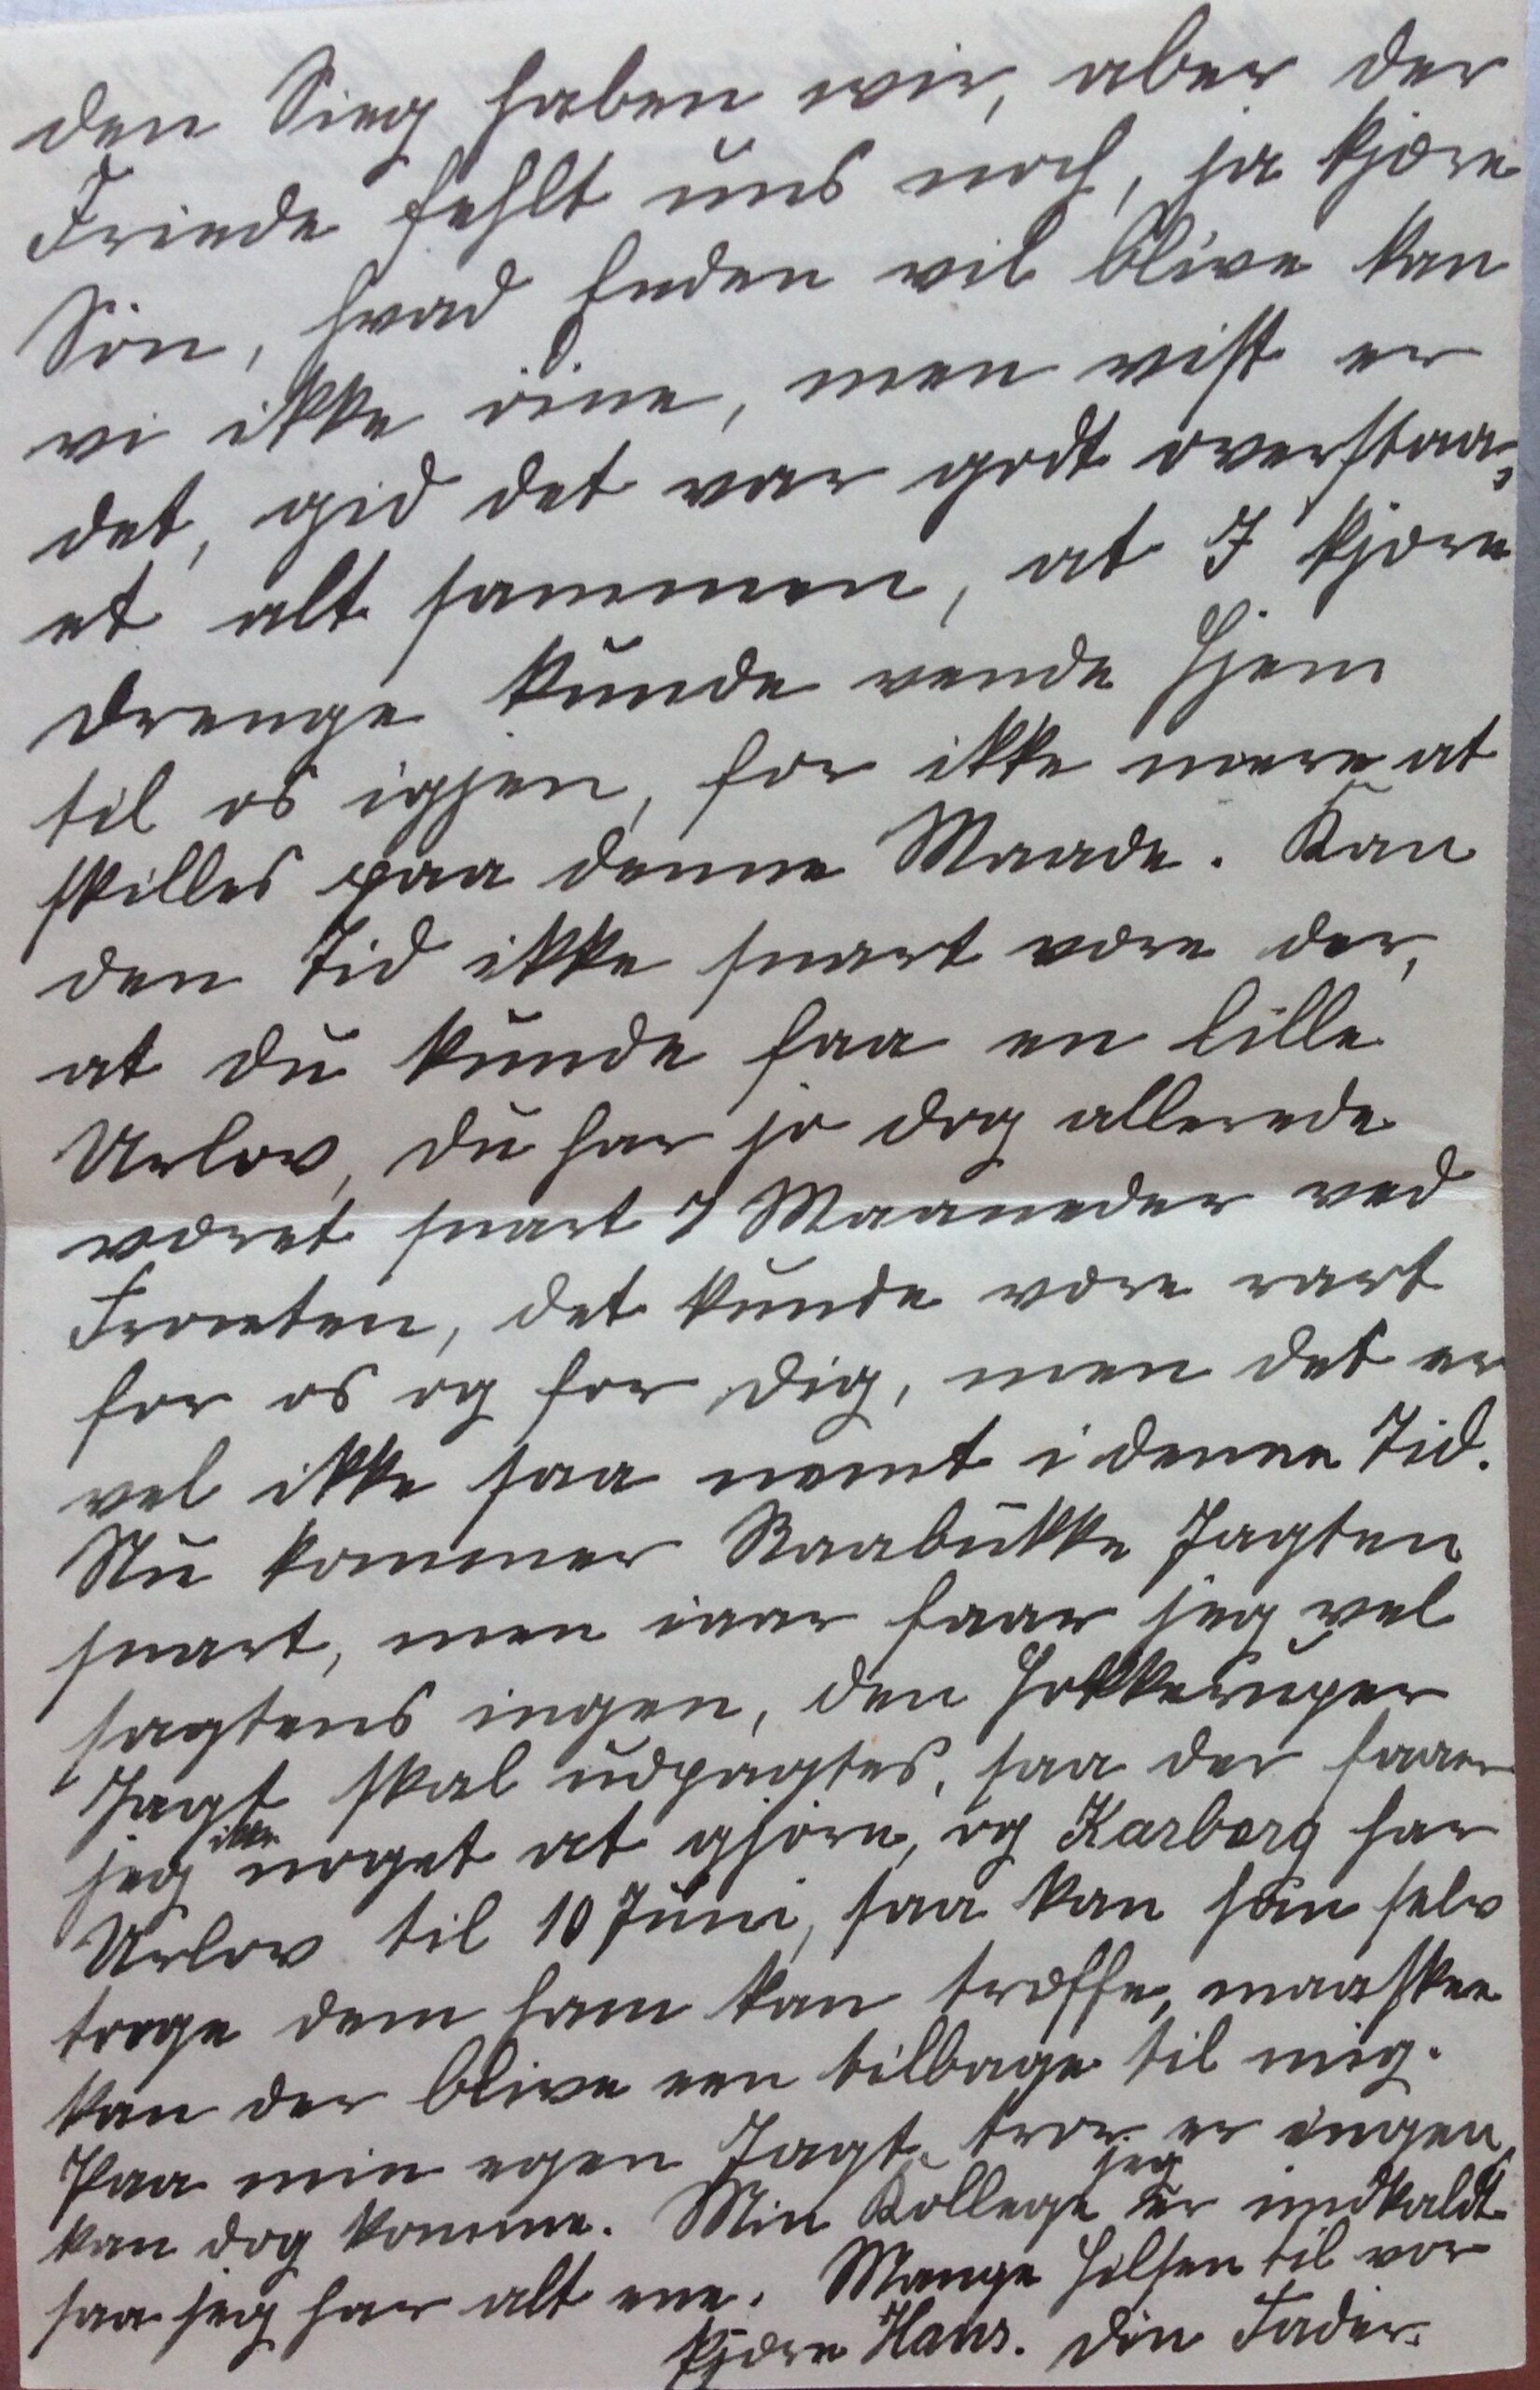 den Sieg haben wir, aber der
Friede fehlt uns noch, ja kjære
Søn, hvad Enden vil blive kan
vi ikke øine, men vist er
det, gid det var godt overstaa„
et alt sammen, at I kjære
Drenge kunde vende hjem
til os igjen, for ikke mere at
skilles paa denne Maade. Kan
den Tid ikke snart være der,
at du kunde faa en lille
Urlov, du har jo dog allerede
været snart 7 Maaneder ved
Fronten, det kunde være rart
for os og for dig, men det er
vel ikke saa nemt i denne Tid.
Nu kommer Raabukke Jagten
snart, men iaar faar jeg vel
sagtens ingen, den Hokkeruper
Jagt skal udpagtes, saa der faaer
jeg ikke noget at gjøre, og Karberg har
Urlov til 10 Juni, saa kan han selv
tage dem ham kan træffe, maaskee
kan der blive een tilbage til mig.
Paa min egen Jagt tror jeg er ingen,
kan dog komme. Min Kollege er indkaldt
saa jeg har alt ene. Mange Hilsen til vor
kjære Hans. din Fader.